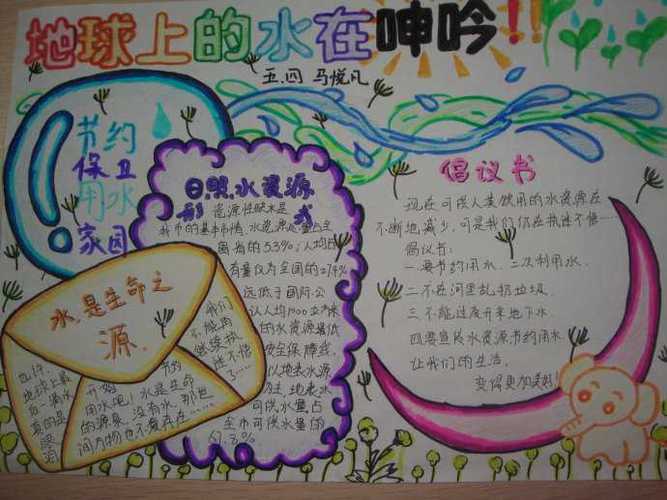 地球上的水在呻吟!!
五.四 马悦凡
节约
保卫
用水
家园
日照水资源
形 式
资源性缺水是
我市的基本市情,水资源总量占全
人均占
有量仅为全国的
远低于国际公
认人均1700立方米
的水资源最低
安全保障线.
以地表水源
为主,地表水
可供水量占
全市可供水量的
67.8%
水,是生命之
源.
我们
不能再
继续执
迷不悟
了……
也许,
地球上最
后一滴水
真的是
眼泪
开始 节约
用水吧!水是生命
的源泉,没有水,那世
间万物也不复存在……
倡议书
现在可供人类饮用的水资源在
不断地减少,可是我们仍在执迷不悟……
倡议书:
一.要节约用水,二次利用水.
二.不在河里乱扔垃圾.
三.不能过度开采地下水.
四.要宣传水资源节约用水.
让我们的生活,
变得更加美好!